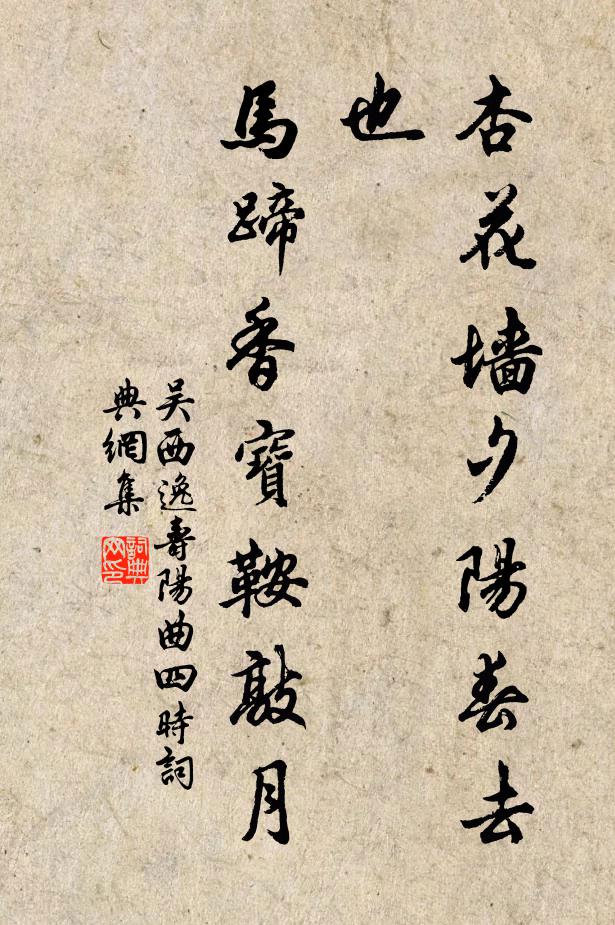 杏花墙夕陽春去
也
馬蹄香寶鞍敲月
吴西逸壽陽曲四時詞
典網集
詞典网印